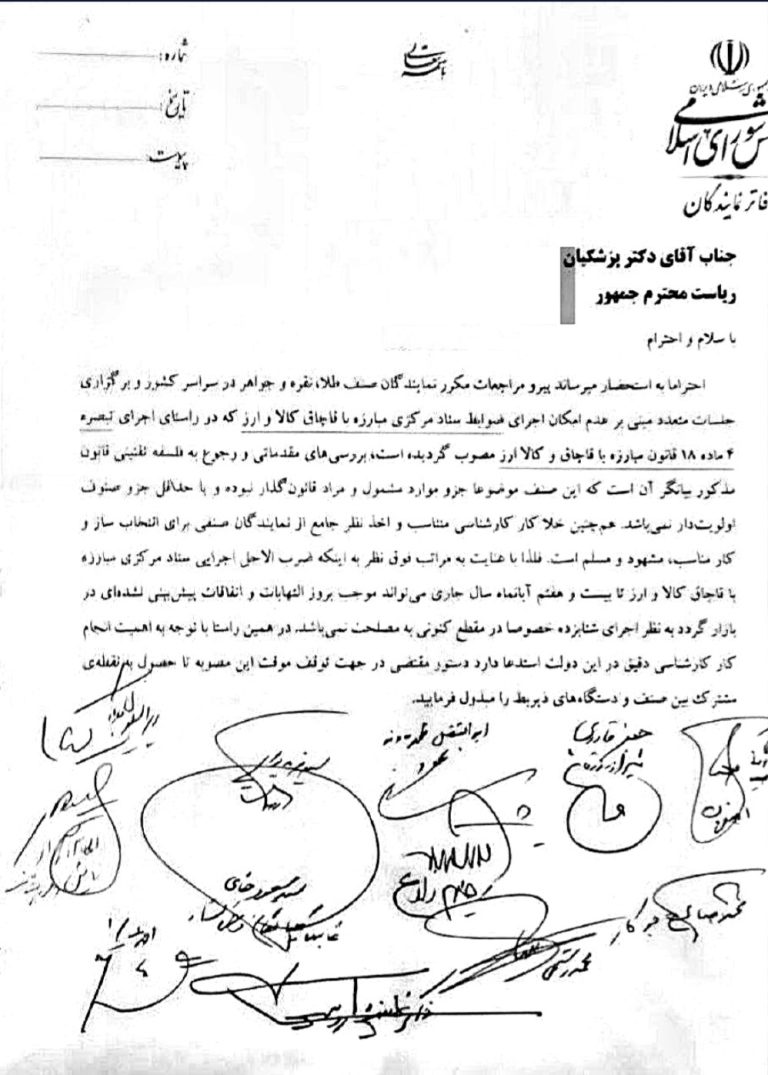 باسمه تعالی
جمهوری اسلامی ایران
شورای اسلامی
نمایندگان
شماره:
تاریخ:
پیوست:
جناب آقای دکتر پزشکیان
ریاست محترم جمهور
با سلام و احترام
احتراما به استحضار میرساند پیرو مراجعات مکرر نمایندگان صنف طلا، نقره و جواهر در سراسر کشور و برگزاری
جلسات متعدد مبنی بر عدم امکان اجرای ضوابط ستاد مرکزی مبارزه با قاچاق کالا و ارز که در راستای اجرای تبصره
۴ ماده ۱۸ قانون مبارزه با قاچاق و کالا ارز مصوب گردیده است، بررسی‌های مقدماتی و رجوع به فلسفه تقنینی قانون
مذکور بیانگر آن است که این صنف موضوعا جزو موارد مشمول و مراد قانون‌گذار نبوده و یا حداقل جزو صنوف
اولویت‌دار نمی‌باشد. هم‌چنین خلا کار کارشناسی متناسب و اخذ نظر جامع از نمایندگان صنفی برای انتخاب ساز و
کار مناسب، مشهود و مسلم است. فلذا با عنایت به مراتب فوق نظر به اینکه ضرب الاجل اجرایی ستاد مرکزی مبارزه
با قاچاق کالا و ارز تا بیست و هفتم آبانماه سال جاری می‌تواند موجب بروز التهابات و اتفاقات پیش‌بینی نشده‌ای در
بازار گردد به نظر اجرای شتابزده خصوصا در مقطع کنونی به مصلحت نمی‌باشد. در همین راستا با توجه به اهمیت انجام
کار کارشناسی دقیق در این دولت استدعا دارد دستور مقتضی در جهت توقف موقت این مصوبه تا حصول به نقطه‌ی
مشترک بین صنف و دستگاه‌های ذیربط را مبذول فرمایید.
محمد صالح جوکار